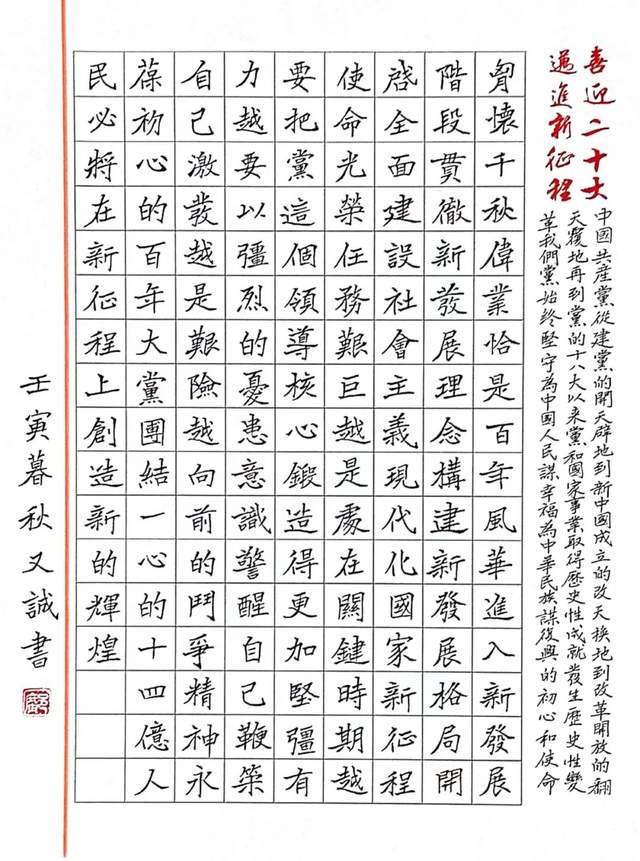 喜迎二十大
邁進新征程
中國共産黨從建黨的開天辟地到新中國成立的改天换地到改革開放的翻
天覆地再到黨的十八大以来黨和國家事業取得歷史性成就發生歷史性變
革我們黨始終堅守為中國人民謀幸福為中華民族謀復興的初心和使命
胷懷千秋偉業恰是百年風華進入新發展
階段貫徹新發展理念構建新發展格局開
啓全面建設社會主義現代化國家新征程
使命光榮任務艱巨越是處在關鍵時期越
要把黨這個領導核心鍛造得更加堅彊有
力越要以彊烈的憂患意識警醒自己鞭策
自己激發越是艱險越向前的鬥爭精神永
葆初心的百年大黨團結一心的十四億人
民必將在新征程上創造新的輝煌
壬寅暮秋又誠書